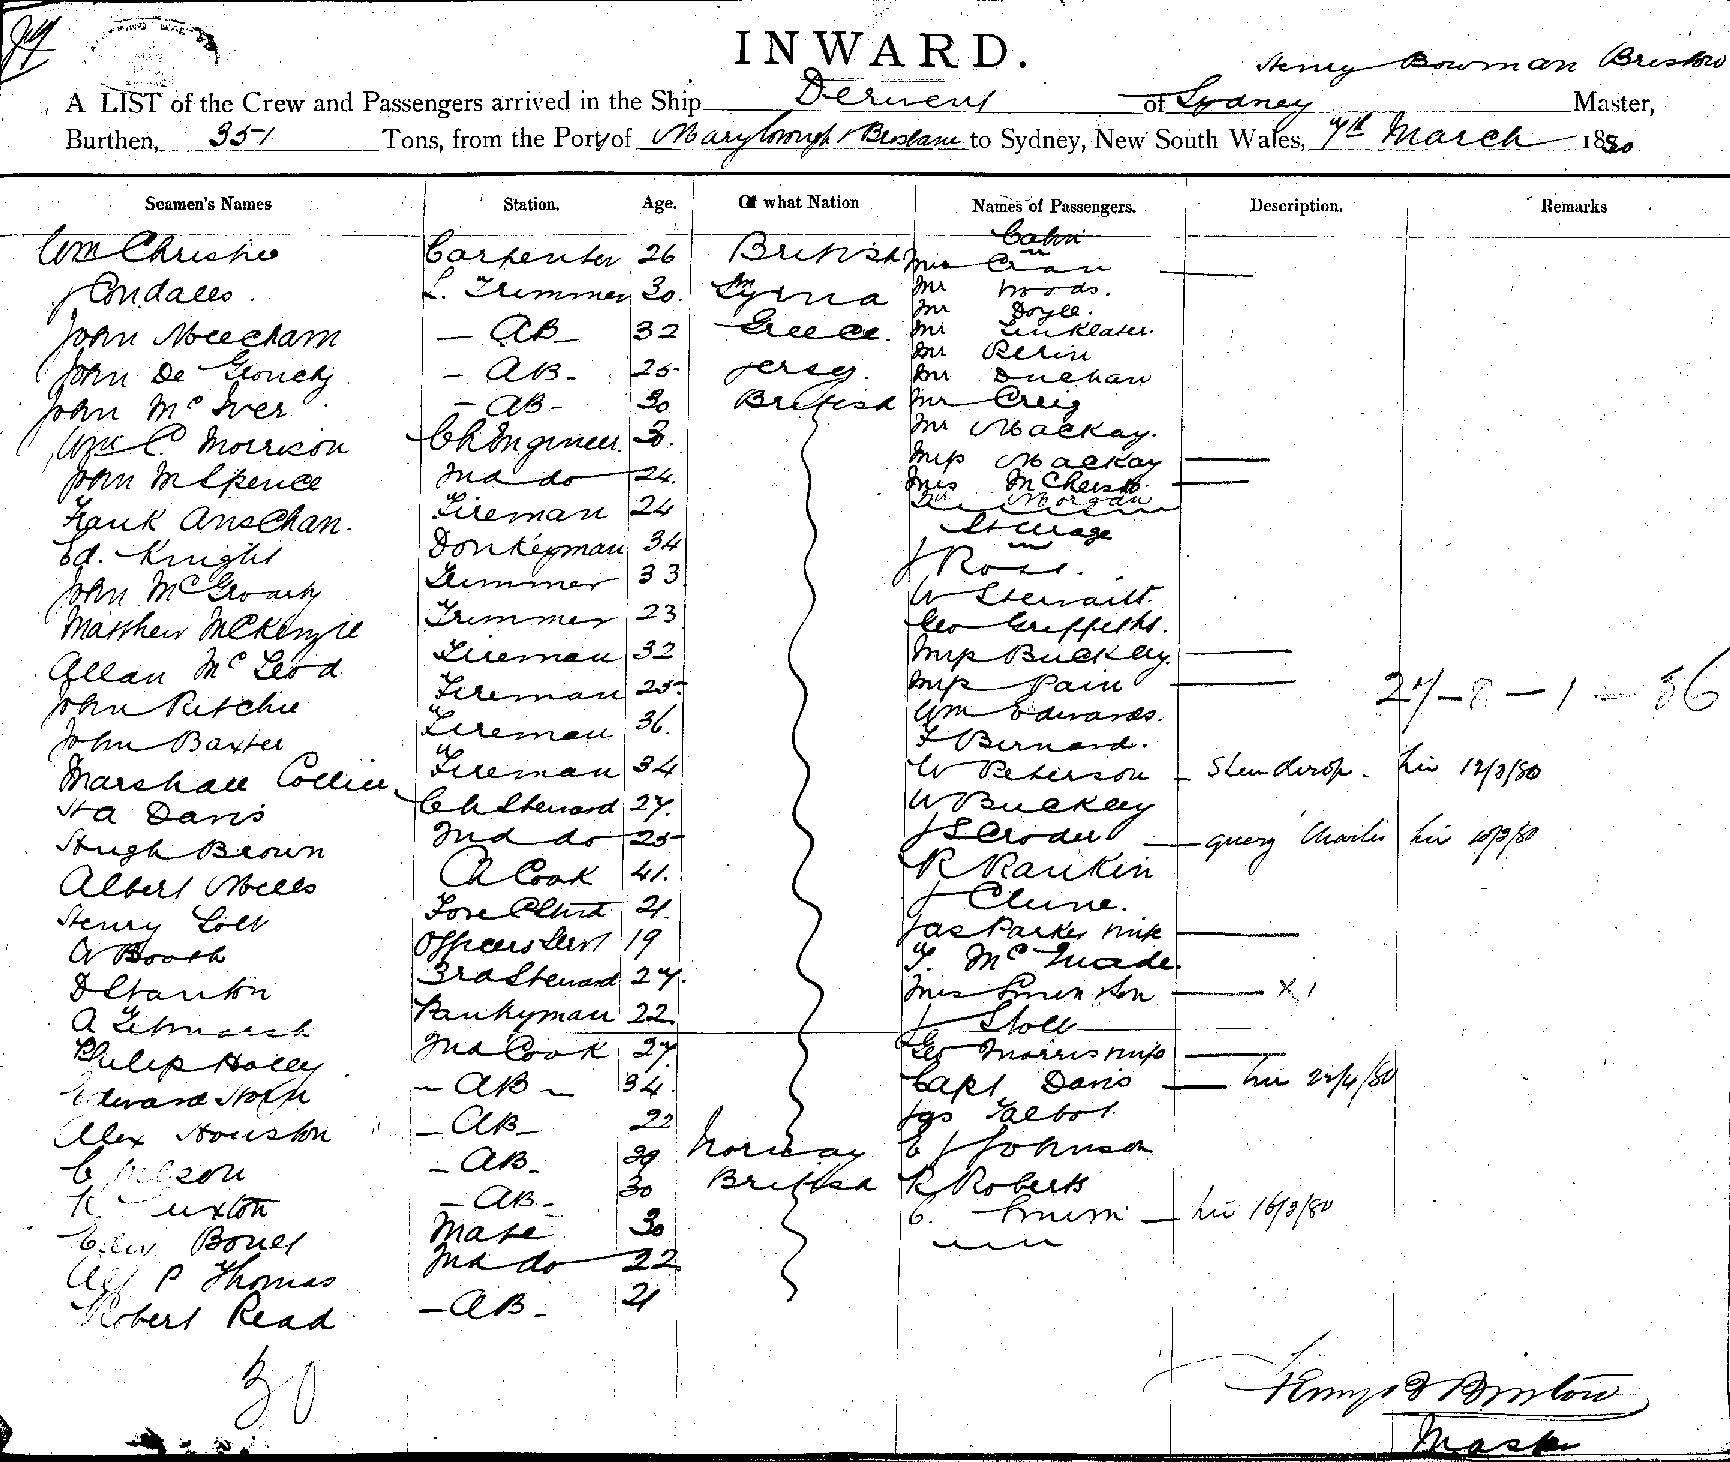 INWARD.
Henry Bowman Bristow
A LIST of the Crew and Passengers arrived in the Ship Derwent of Sydney Master,
Burthen, 351 Tons, from the Port of Maryborough & Brisbane to Sydney, New South Wales, 7th March 1880
Seamen's Names Station. Age. Of what Nation Names of Passengers. Description. Remarks
Wm Christie Carpenter 26 British
Cabin
Mrs Cran
J Condaces. L. Trimmer 30. Smyrna Mr Woods.
Mr Doyle.
John Meecham - AB - 32 Greece. Mr Linklater.
Mr Perin
John De Grouchy - AB - 25 Jersey. Mr Duchan
John McIver - AB - 30 British Mr Creig
Wm C. Morrison Ch Engineer. 30. Mr Mackay.
John M Spence 2nd do 24. Miss Mackay
Mrs
Morgan
Frank Anschan. Fireman 24
Steerage
Ed. Knight Donkeyman 34 J Ross.
John McGroarty Trimmer 33 W Stewart
Matthew McKenzie Trimmer 23 Geo Griffiths.
Allan McLeod Fireman 32 Miss Buckley.
John Ritchie Fireman 25 Miss Pain
John Baxter Fireman 36. Wm Edwards.
F Bernard.
Marshall Collier Fireman 34 W Peterson 12/3/80
H A Davis Ch Steward 27. W Buckley
Hugh Brown 2nd do 25 query Charles
Albert Mills Ch Cook 41. R Rankin
Henry Lott 21. J Clune.
A Booth Officers Servt 19 Jas Parker
T. McQuade.
D Stanton 3rd Steward 27. Mrs
A Pantryman 22 J Stott
Philip Holley 2nd Cook 27. Geo Morris
Edward - AB - 34. Capt Davis 22/4/80
Alex Houston - AB - 22 Jas Talbot
C Nelson - AB - 29 Norway E J Johnson
- AB - 30 British R Roberts
Mate 30 C. 16/3/80
Alf P Thomas 2nd do 22
Robert Read - AB - 21
30
Henry B Bristow
Master